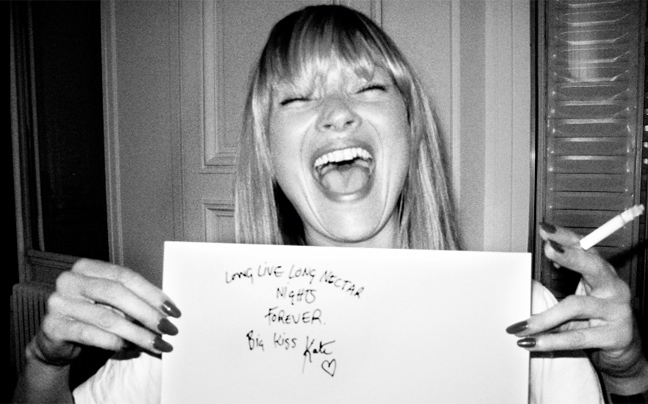 LONG LIVE LONG NECTAR
NIGHTS
FOREVER.
BIG KISS Kate